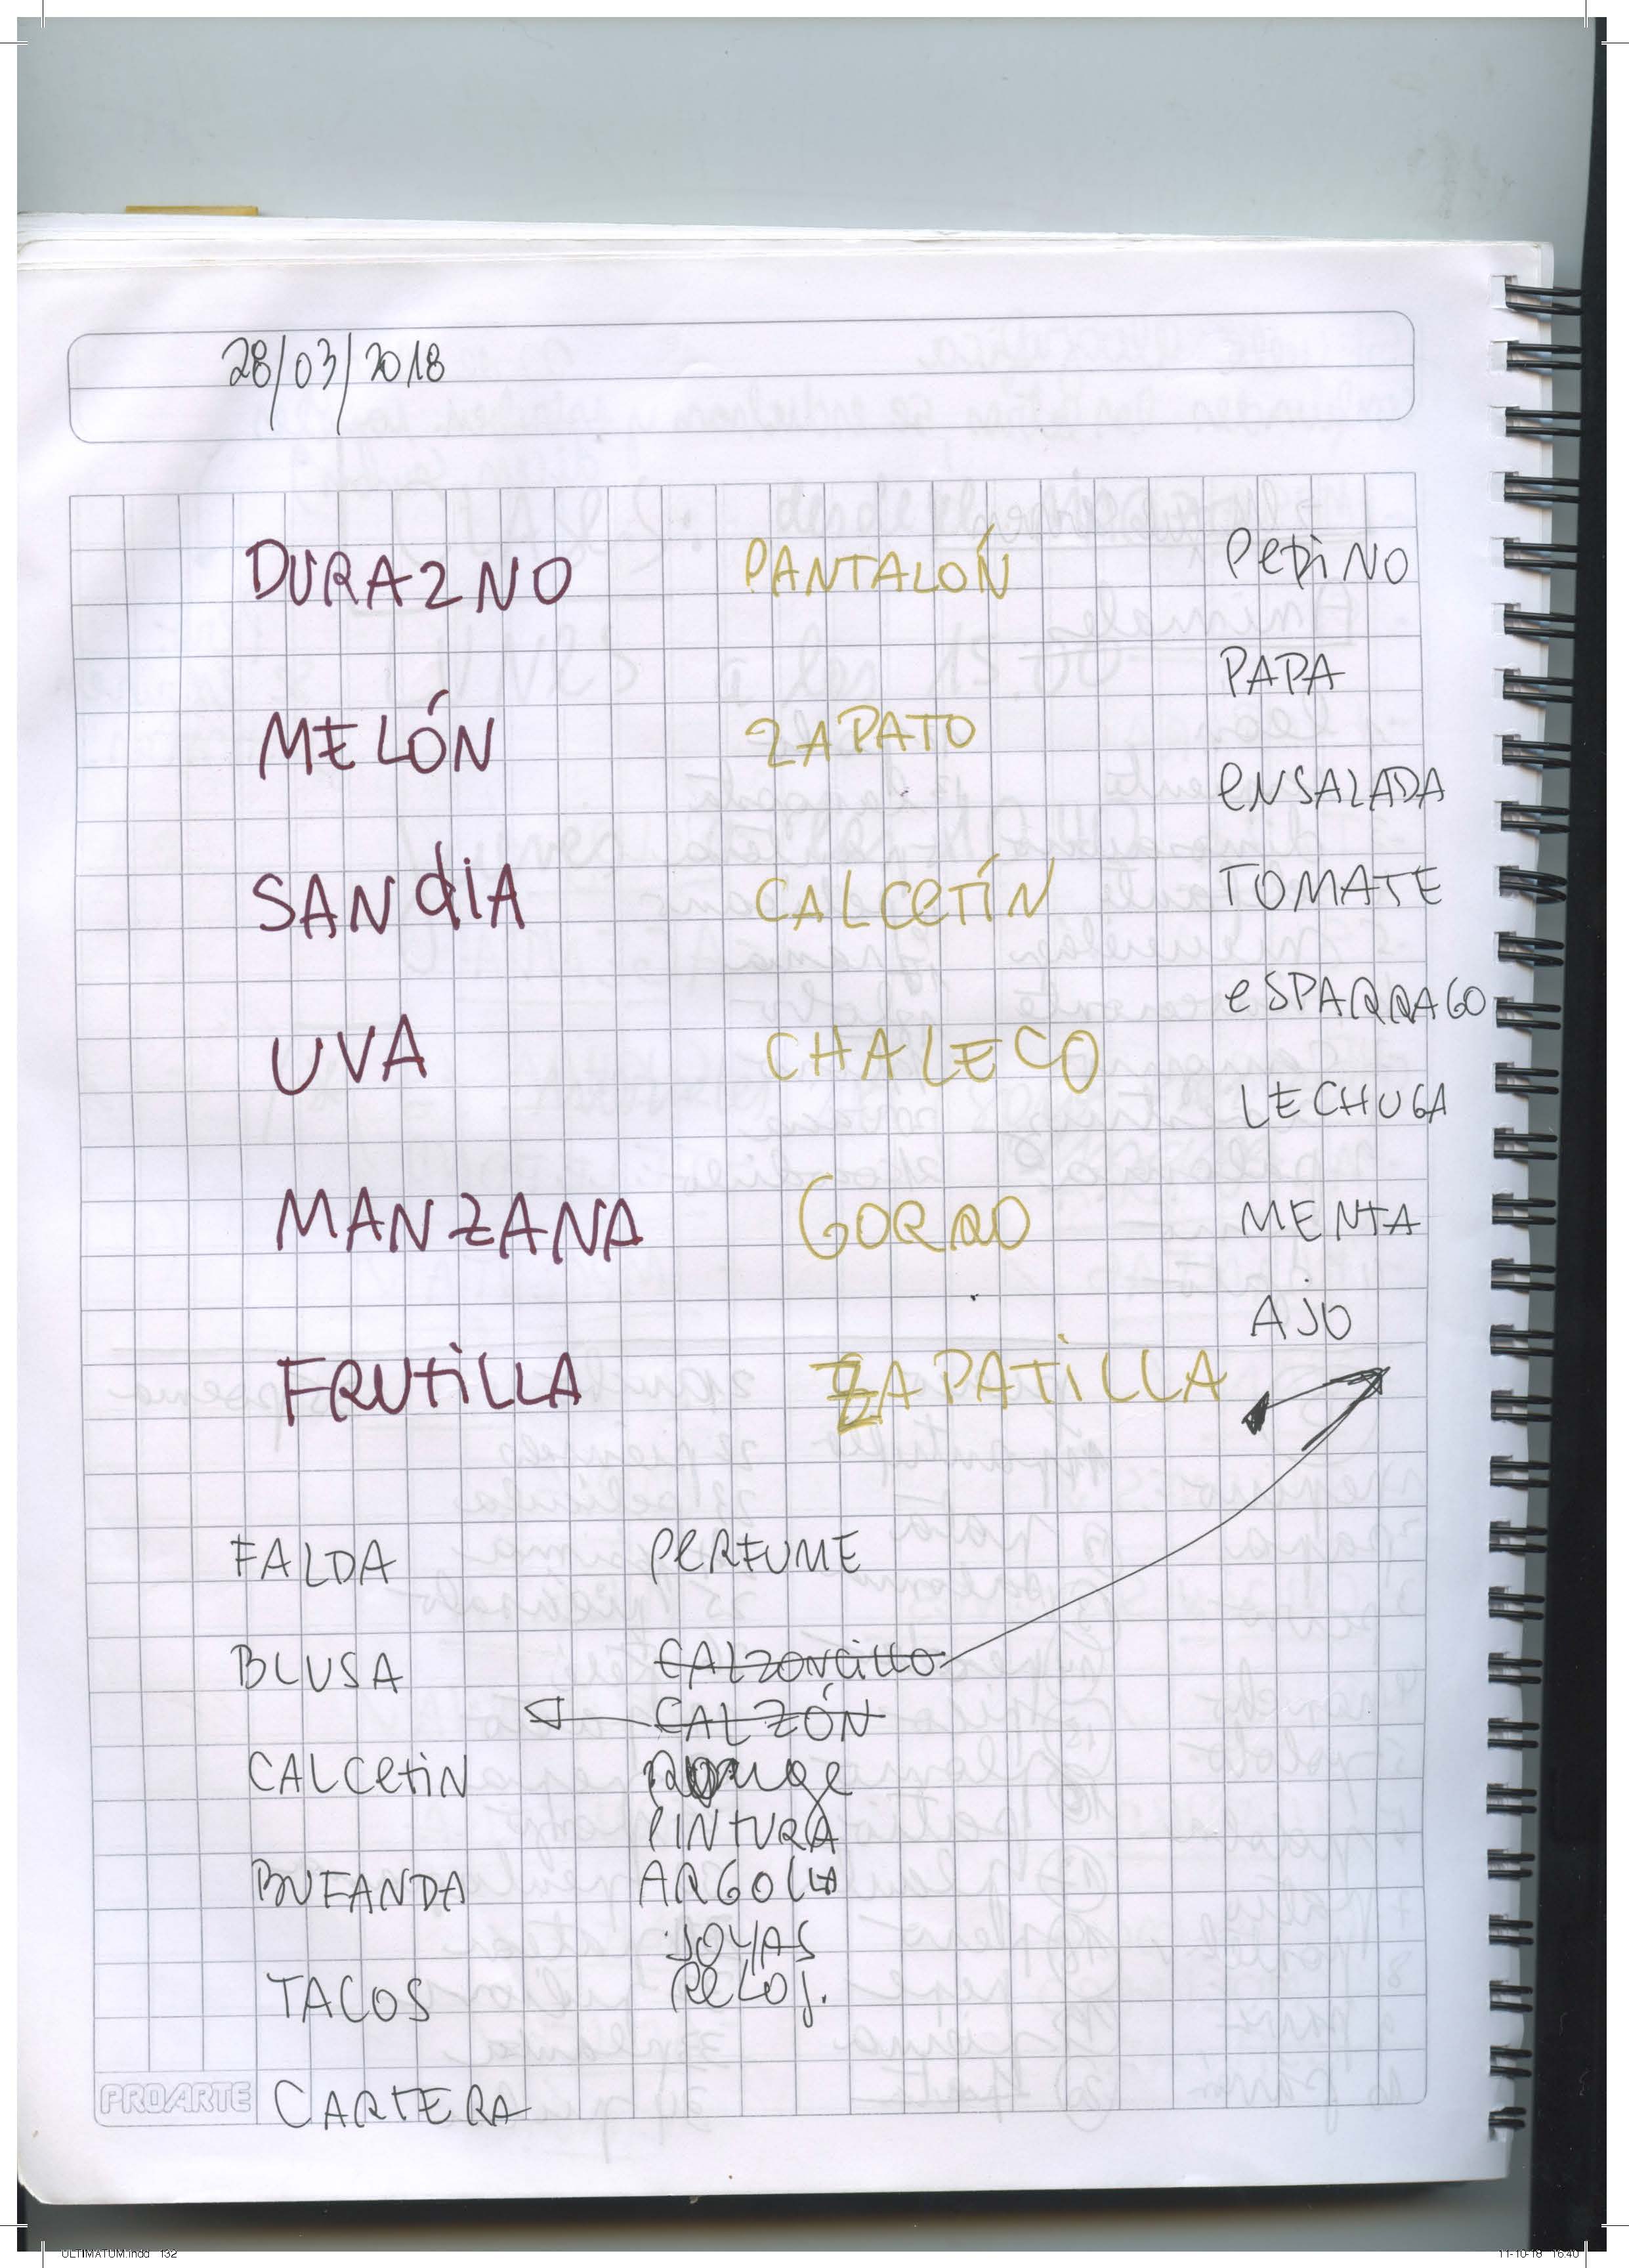 28/03/2018
DURAZNO
MELÓN
SANdiA
UVA
MANZANA
FRUTiLLA
PANTALÓN
ZAPATO
CALCETÍN
CHALECO
GORRO
ZAPATiLLA
PepiNO
PAPA
eNSALADA
TOMATE
eSPARRAGO
LECHUGA
MENTA
AJO
FALDA
BLUSA
CALCetiN
BUFANDA
TACOS
CARTERA
PeRFUME
CALZONCiLLO
CALZÓN
Rouge
PINTURA
ARGOLLA
JOYAS
ReLOj.
PROARTE
ULTIMATUM.indd 132
11-10-18 16:40